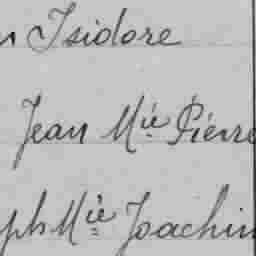 n Isidore
Jean Mie Pierre
ph Mie Joachim